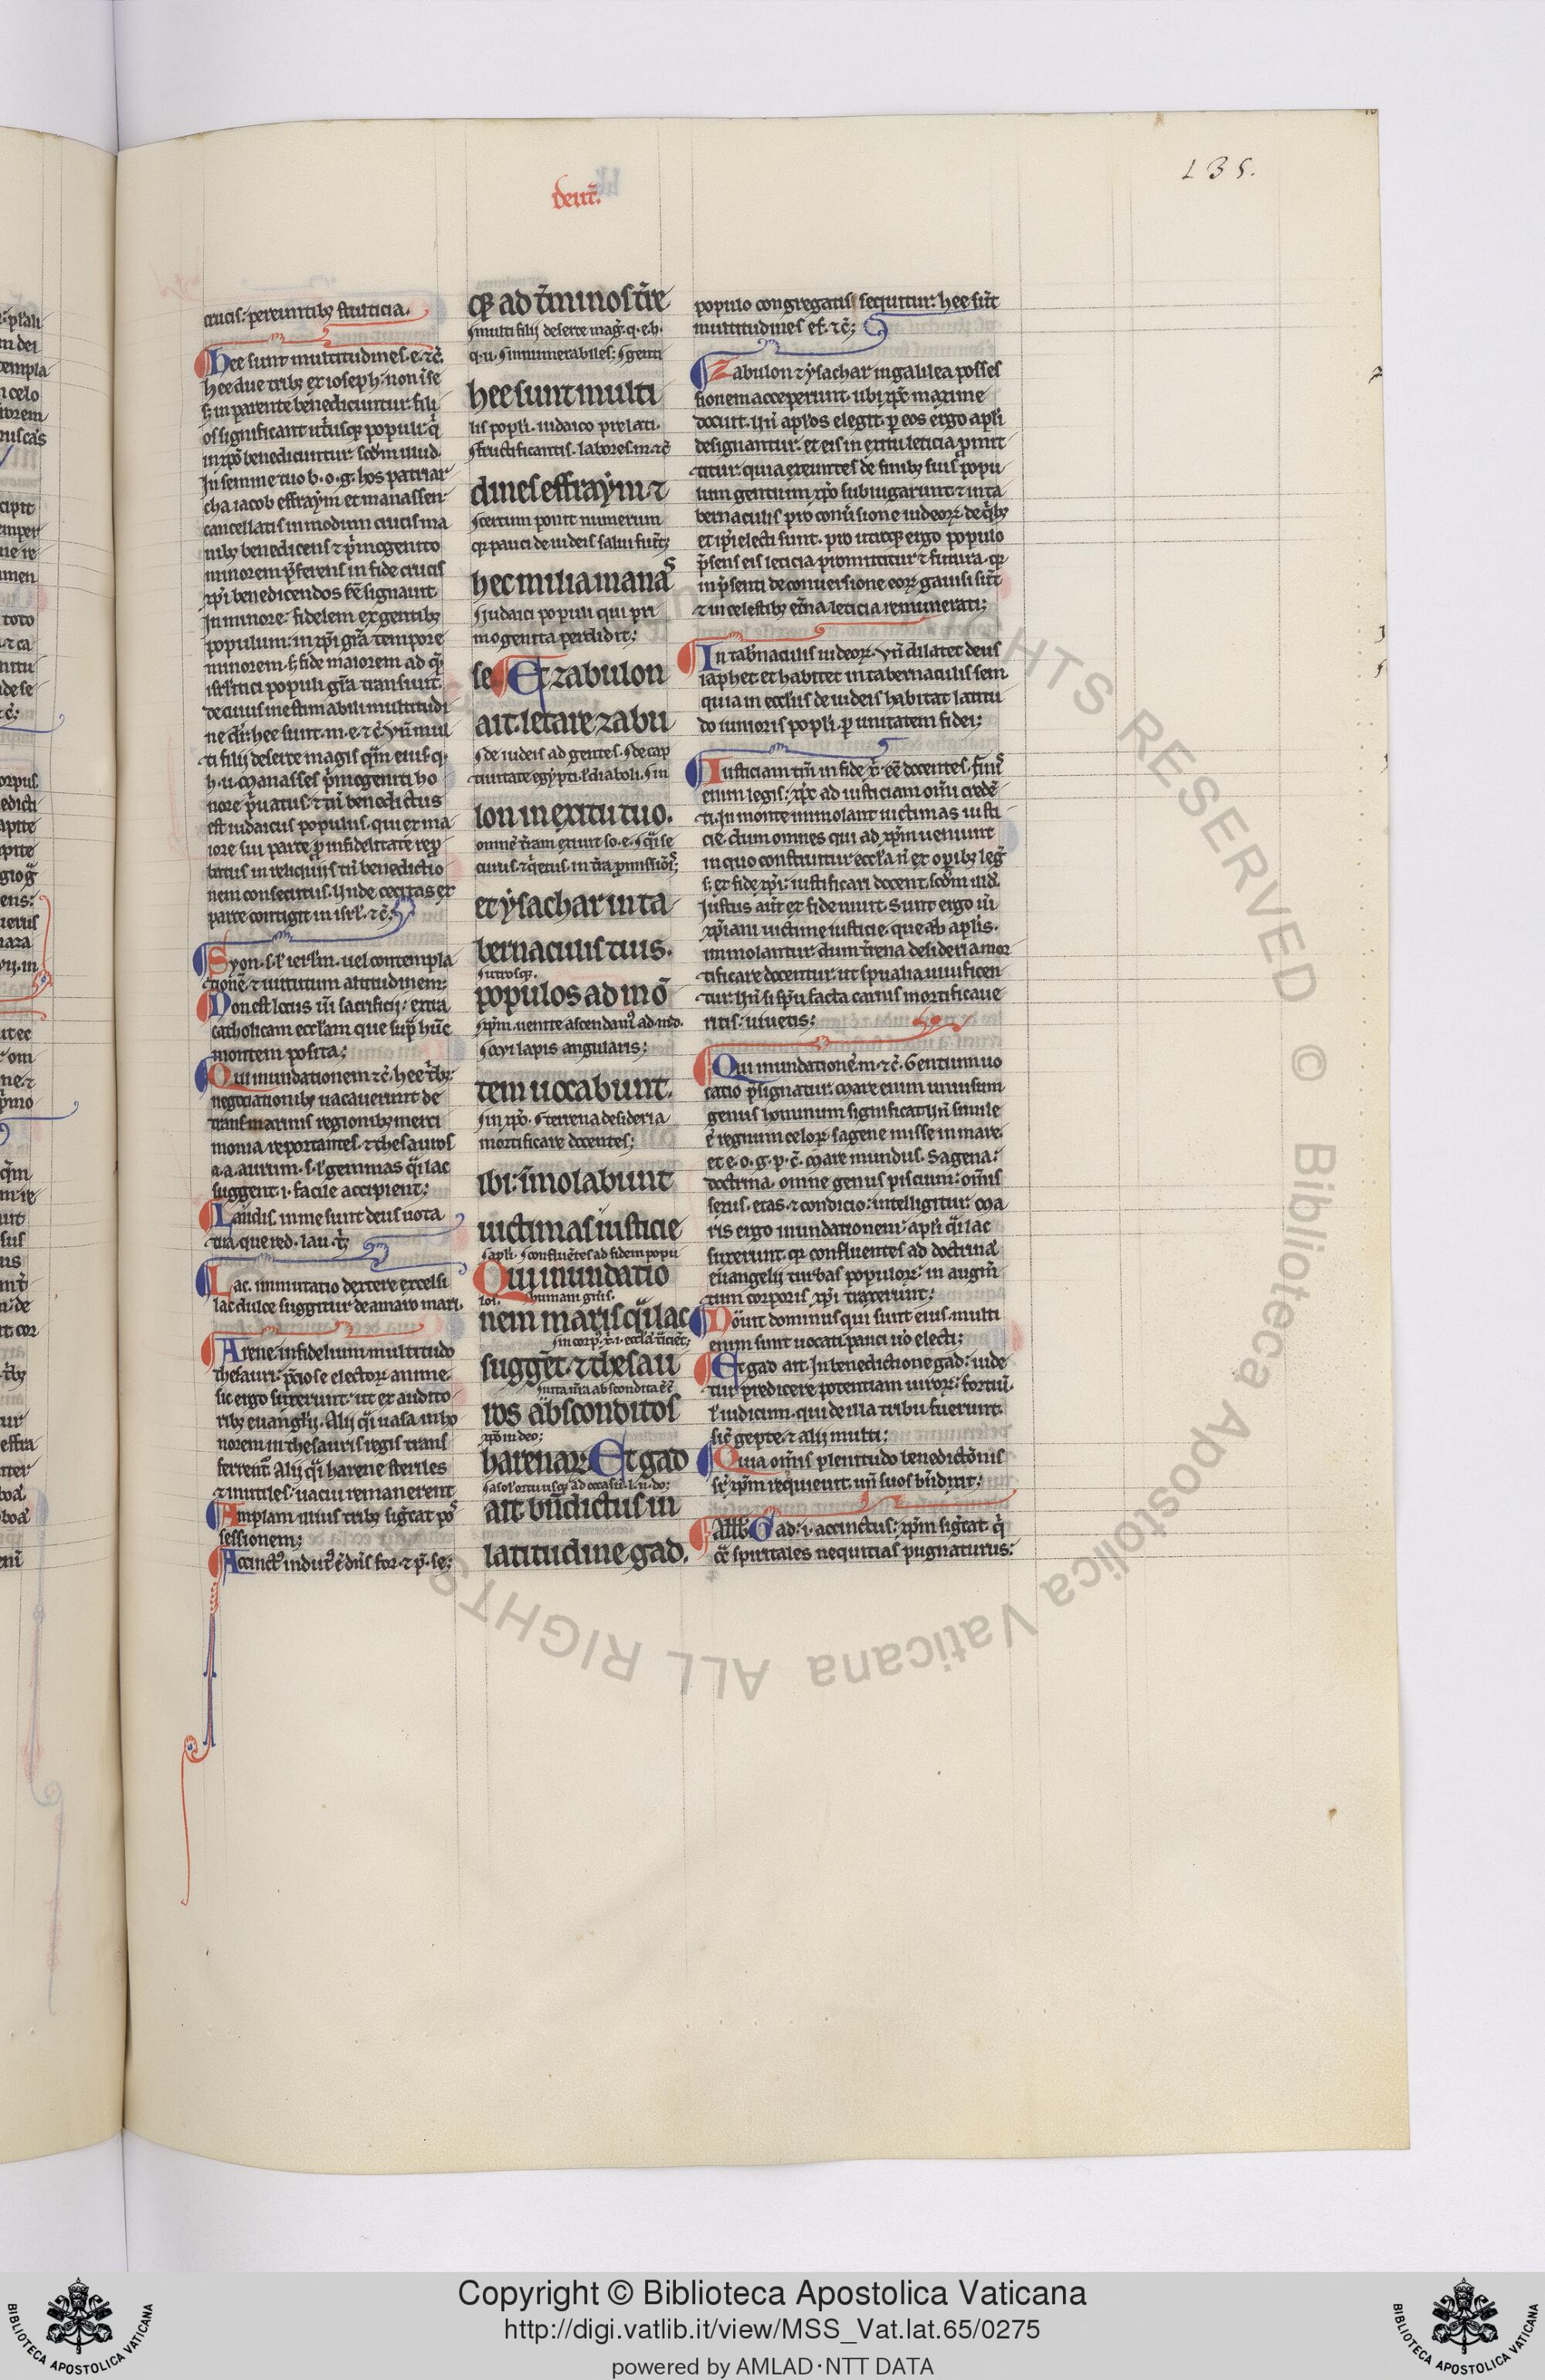 135.
deut̃.
crucis: pereuntibꝫ stulticia.
Hee sunt multitudines .e. ⁊c̃.
hee due tribꝫ ex ioseph. non i se
ꝫ in parente benedicuntur. fili
os significant ut̾usqꝫ populi. q̾
in xp̃o benedicuntur. scd̃m illud.
In semine tuo b. o. g. hos patriar
cha iacob effraym et manassen
cancellatis in modum crucis ma
nibꝫ benedicens ⁊ p̾mogenito
minorem p̃ferens in fide crucis
xp̃i benedicendos eẽ signauit
In minore: fidelem ex gentibꝫ
populum: in xp̃i gr̃a tempore
minorem. ꝫ fide maiorem ad q̃
isrl̃itici populi gr̃a transiuit.
de cuius inestimabili multitudi
ne dr̃: hee sunt .m. e. ⁊c̃ vn̄ mul
ti filij deserte magis q̃m eius q̾
h. u. Manasses p̾mogeniti ho
nore p̾uatus. ⁊ tn̄ benedictus
est iudaicus populus. qui ex ma
iore sui parte ꝓ infidelitate repͦ
batus in reliquijs tn̄ benedictio
nem consecutus. Unde cecitas ex
parte contigit in isrl̃. ⁊c̃.
Syon .s. l̾ ierl̃m. uel contempla
tionẽ ⁊ uirtutum altitudinem:
Non est locus ui̾ sacrificij: extra
catholicam eccl̃am que sup̾ hũc
montem posita;
Qui inundationem ⁊c̃. hee t̾bꝫ:
negociationibꝫ uacauerunt de
transmarinis regionibꝫ merci
monia reportantes. ⁊ thesauros
a. a. aurum .s. l̾ gemmas q̃i lac
suggent .i. facile accipient;
Laudis. in me sunt deus uota
tua que red. lau. t̾
Lac. immutatio dextere excelsi
lac dulce suggitur de amaro mari.
Arene infidelium multitudo
thesauri: p̃ciose electorꝝ anime.
sic ergo suxerunt. ut ex audito
ribꝫ euanglij. Alij q̃i uasa in ho
norem in thesauris regis trans
ferrent̃ Alij q̃i harene steriles
⁊ inutiles. uacui remanerent
Amplam uiuus tribꝫ sig̃cat pos̾
sessionem;
Accinctꝰ indutꝰ ẽ dn̄s for. ⁊ p̾. se;
qꝫ ad t̃minos tr̃e
multi filij deserte mag̾. q̾. e. h.
q. u. innumerabiles; genti
hee sunt multi
lis popl̾i. iudaico prelati.
fructificantis. labores. m. ⁊c̃
dines effraym. ⁊
certum ponit numerum
qꝛ pauci de iudeis salui fuẽt;
hec milia manas̾
Iudaici populi qui pri
mogenita perdidit;
se Et zabulon
ait. letare zabu
de iudeis ad gentes. de cap
tiuitate egypti. l̾ diaboli. in
lon in exitu tuo.
omnẽ t̃ram exiuit so. e. q̃i se
curus. ⁊ q̾etus. in t̃ra ꝓmissiõis̾;
et ysachar in ta
bernaculis tuis.
utrosqꝫ.
populos ad mõ
xp̃m. uenite ascendamꝰ ad mõ.
xp̃i lapis angularis;
tem uocabunt.
in xp̃o. terrena desideria
mortificare docentes;
ibi: im̃olabunt
uictimas iusticie
apl̾i. confluẽtes ad fidem popu
Qui inundatio
los. humani gñis.
nem maris q̃i lac
in corpꝰ xp̃i. i. eccl̃a t̾icient;
sugg̃et. ⁊ thesau
iuxta ill̃a abscondita ẽ
ros absconditos
xp̃o in deo;
harenarꝝ Et gad
a sol̾ ortu usqꝫ ad occasũ. l. n. do;
ait bñdictus in
latitudine gad.
populo congregatis sequitur: hee sũt
multitudines ef. ⁊c̃;
Zabulon ⁊ ysachar in galilea posses
sionem acceperunt. ubi xp̃c maxime
docuit. Un̄ apl̾os elegit. p eos ergo apl̾i
designantur. et eis in exitu leticia ꝓmit
titur. quia exeuntes de finibꝫ suis popu
lum gentium xp̃o subiugarunt ⁊ in ta
bernaculis pro conũsione iudeorꝝ de q̾bꝫ
et ip̃i electi sunt. pro utroqꝫ ergo populo
p̃sens eis leticia promittitur ⁊ futura. qꝛ
in p̃senti de conuersione eorꝝ gauisi sũt
⁊ in celestibꝫ et̃na leticia remunerati;
In tab̾naculis iudeorꝝ. vn̄ dilatet deus
iaphet et habitet in tabernaculis sem
quia in eccl̾iis de iudeis habitat latitu
do iunioris popl̾i. p unitatem fidei;
Iusticiam tm̃ in fide xp̃i eẽ docentes. finis̾
enim legis: xp̃c ad iusticiam om̃i credẽ
ti. In monte immolant uictimas iusti
cie. dum omnes qui ad xp̃m ueniunt
in quo constituitur eccl̾a ñ ex opibꝫ leg̾
ꝫ ex fide xp̃i: iustificari docent. scd̃m illd̃.
Iustus aut̃ ex fide uiuit. Sunt ergo ui̾
xp̃iani uictime iusticie. que ab apl̾is.
immolantur. dum t̃rena desideria mor
tificare docentur. ut spũalia uiuificen
tur. Un̄ si spũ facta carnis mortificaue
ritis: uiuetis;
Qui inundationẽ .m. ⁊c̃. Gentium uo
catio p̃signatur. Mare enim uniuersum
genus hominum significat. Un̄ simile
ẽ regnum celorꝝ sagene misse in mare.
et e. o. g. p. c̃. Mare mundus. Sagena:
doctrina. omne genus piscium: om̃is
sexus. etas. ⁊ condicio: intelligitur. Ma
ris ergo inundationem: apl̾i q̃i lac
suxerunt. qꝛ confluentes ad doctrinã
euangelij turbas populorꝝ. in augm̃
tum corporis xp̃i traxerunt;
Nouit dominus qui sunt eius. multi
enim sunt uocati pauci uo̾ electi;
Et gad ait In benedictione gad: uide
tur predicere potentiam uirorꝝ: fortiũ.
l̾ iudicum. qui de illa tribu fuerunt.
sic̾ gepte. ⁊ alij multi;
Quia om̃is plenitudo benedictõnis
sr̾ xp̃m req̾euit. un̄ suos bñdixit;
Allb̾. Gad: .i. accinctus: xp̃m sig̃tat q̾
cõ spiritales nequitias pugnaturus:
ALL RIGHTS RESERVED © Biblioteca Apostolica Vaticana
BIBLIOTECA APOSTOLICA VATICANA
Copyright © Biblioteca Apostolica Vaticana
http://digi.vatlib.it/view/MSS_Vat.lat.65/0275
powered by AMLAD·NTT DATA
BIBLIOTECA APOSTOLICA VATICANA